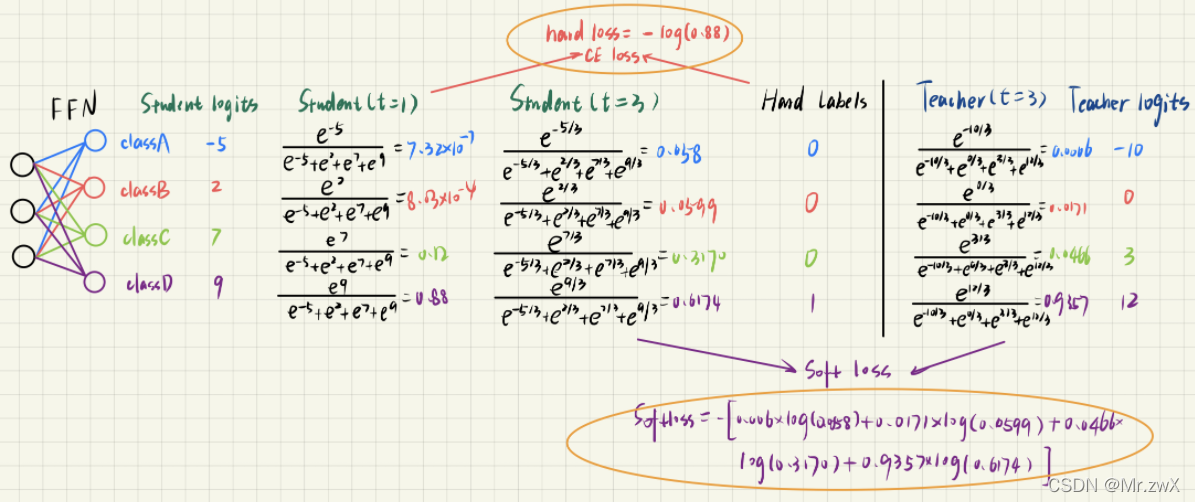 hard loss = - log(0.88)
CE loss
FFN Student logits Student(t=1) Student(t=3) Hard labels Teacher(t=3) Teacher logits
classA -5 e^-5 / (e^-5+e^2+e^7+e^9) = 7.32×10^-7 e^-5/3 / (e^-5/3+e^2/3+e^7/3+e^9/3) = 0.058 0 e^-10/3 / (e^-10/3+e^0/3+e^3/3+e^12/3) = 0.0006 -10
classB 2 e^2 / (e^-5+e^2+e^7+e^9) = 8.03×10^-4 e^2/3 / (e^-5/3+e^2/3+e^7/3+e^9/3) = 0.0599 0 e^0/3 / (e^-10/3+e^0/3+e^3/3+e^12/3) = 0.0171 0
classC 7 e^7 / (e^-5+e^2+e^7+e^9) = 0.12 e^7/3 / (e^-5/3+e^2/3+e^7/3+e^9/3) = 0.3170 0 e^3/3 / (e^-10/3+e^0/3+e^3/3+e^12/3) = 0.0466 3
classD 9 e^9 / (e^-5+e^2+e^7+e^9) = 0.88 e^9/3 / (e^-5/3+e^2/3+e^7/3+e^9/3) = 0.6174 1 e^12/3 / (e^-10/3+e^0/3+e^3/3+e^12/3) = 0.9357 12
Soft loss
Softloss = -[0.006×log(0.058)+0.0171×log(0.0599)+0.0466×
log(0.3170)+0.9357×log(0.6174)]
CSDN @Mr.zwX